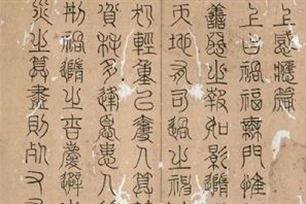 上感應篇
上曰禍福無門惟
善惡之報如影隨
天地有司過之神
犯輕重以奪人算
貧耗多逢憂患人
刑禍隨之吉慶避
災之算盡則死又有